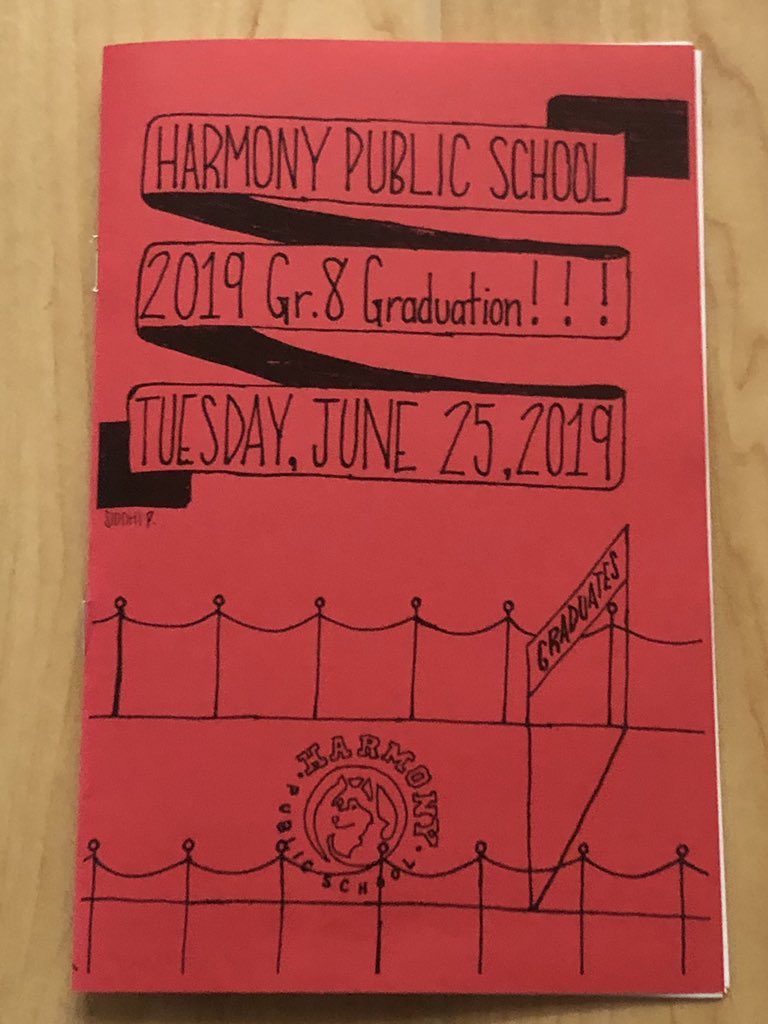 HARMONY PUBLIC SCHOOL
2019 Gr.8 Graduation!!!
TUESDAY, JUNE 25, 2019
SIDDHI P.
GRADUATES
HARMONY
· PUBLIC SCHOOL ·